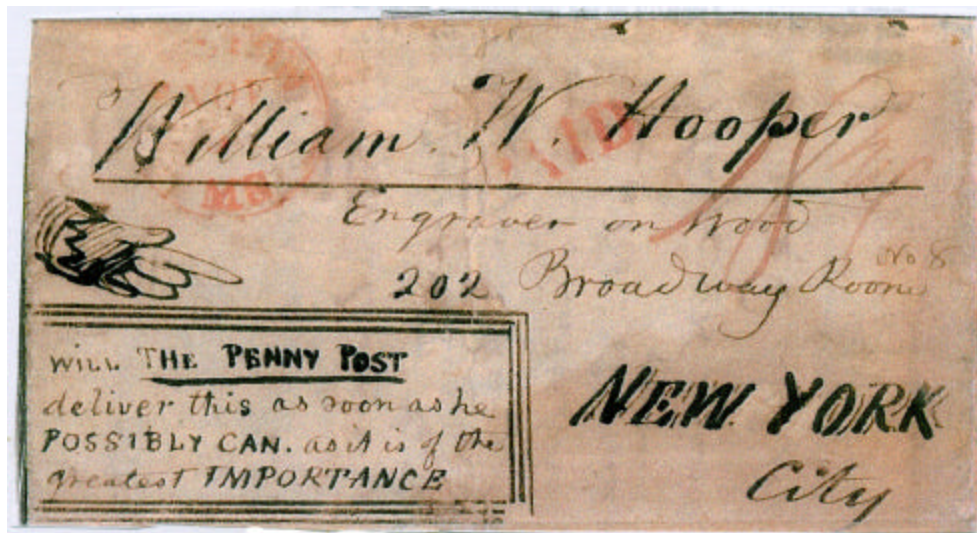 William. W. Hooper
PAID
MS
Engraver on Wood
No 8
202 Broadway Room
WILL THE PENNY POST
deliver this as soon as he
POSSIBLY CAN. as it is of the
greatest IMPORTANCE
NEW YORK
City